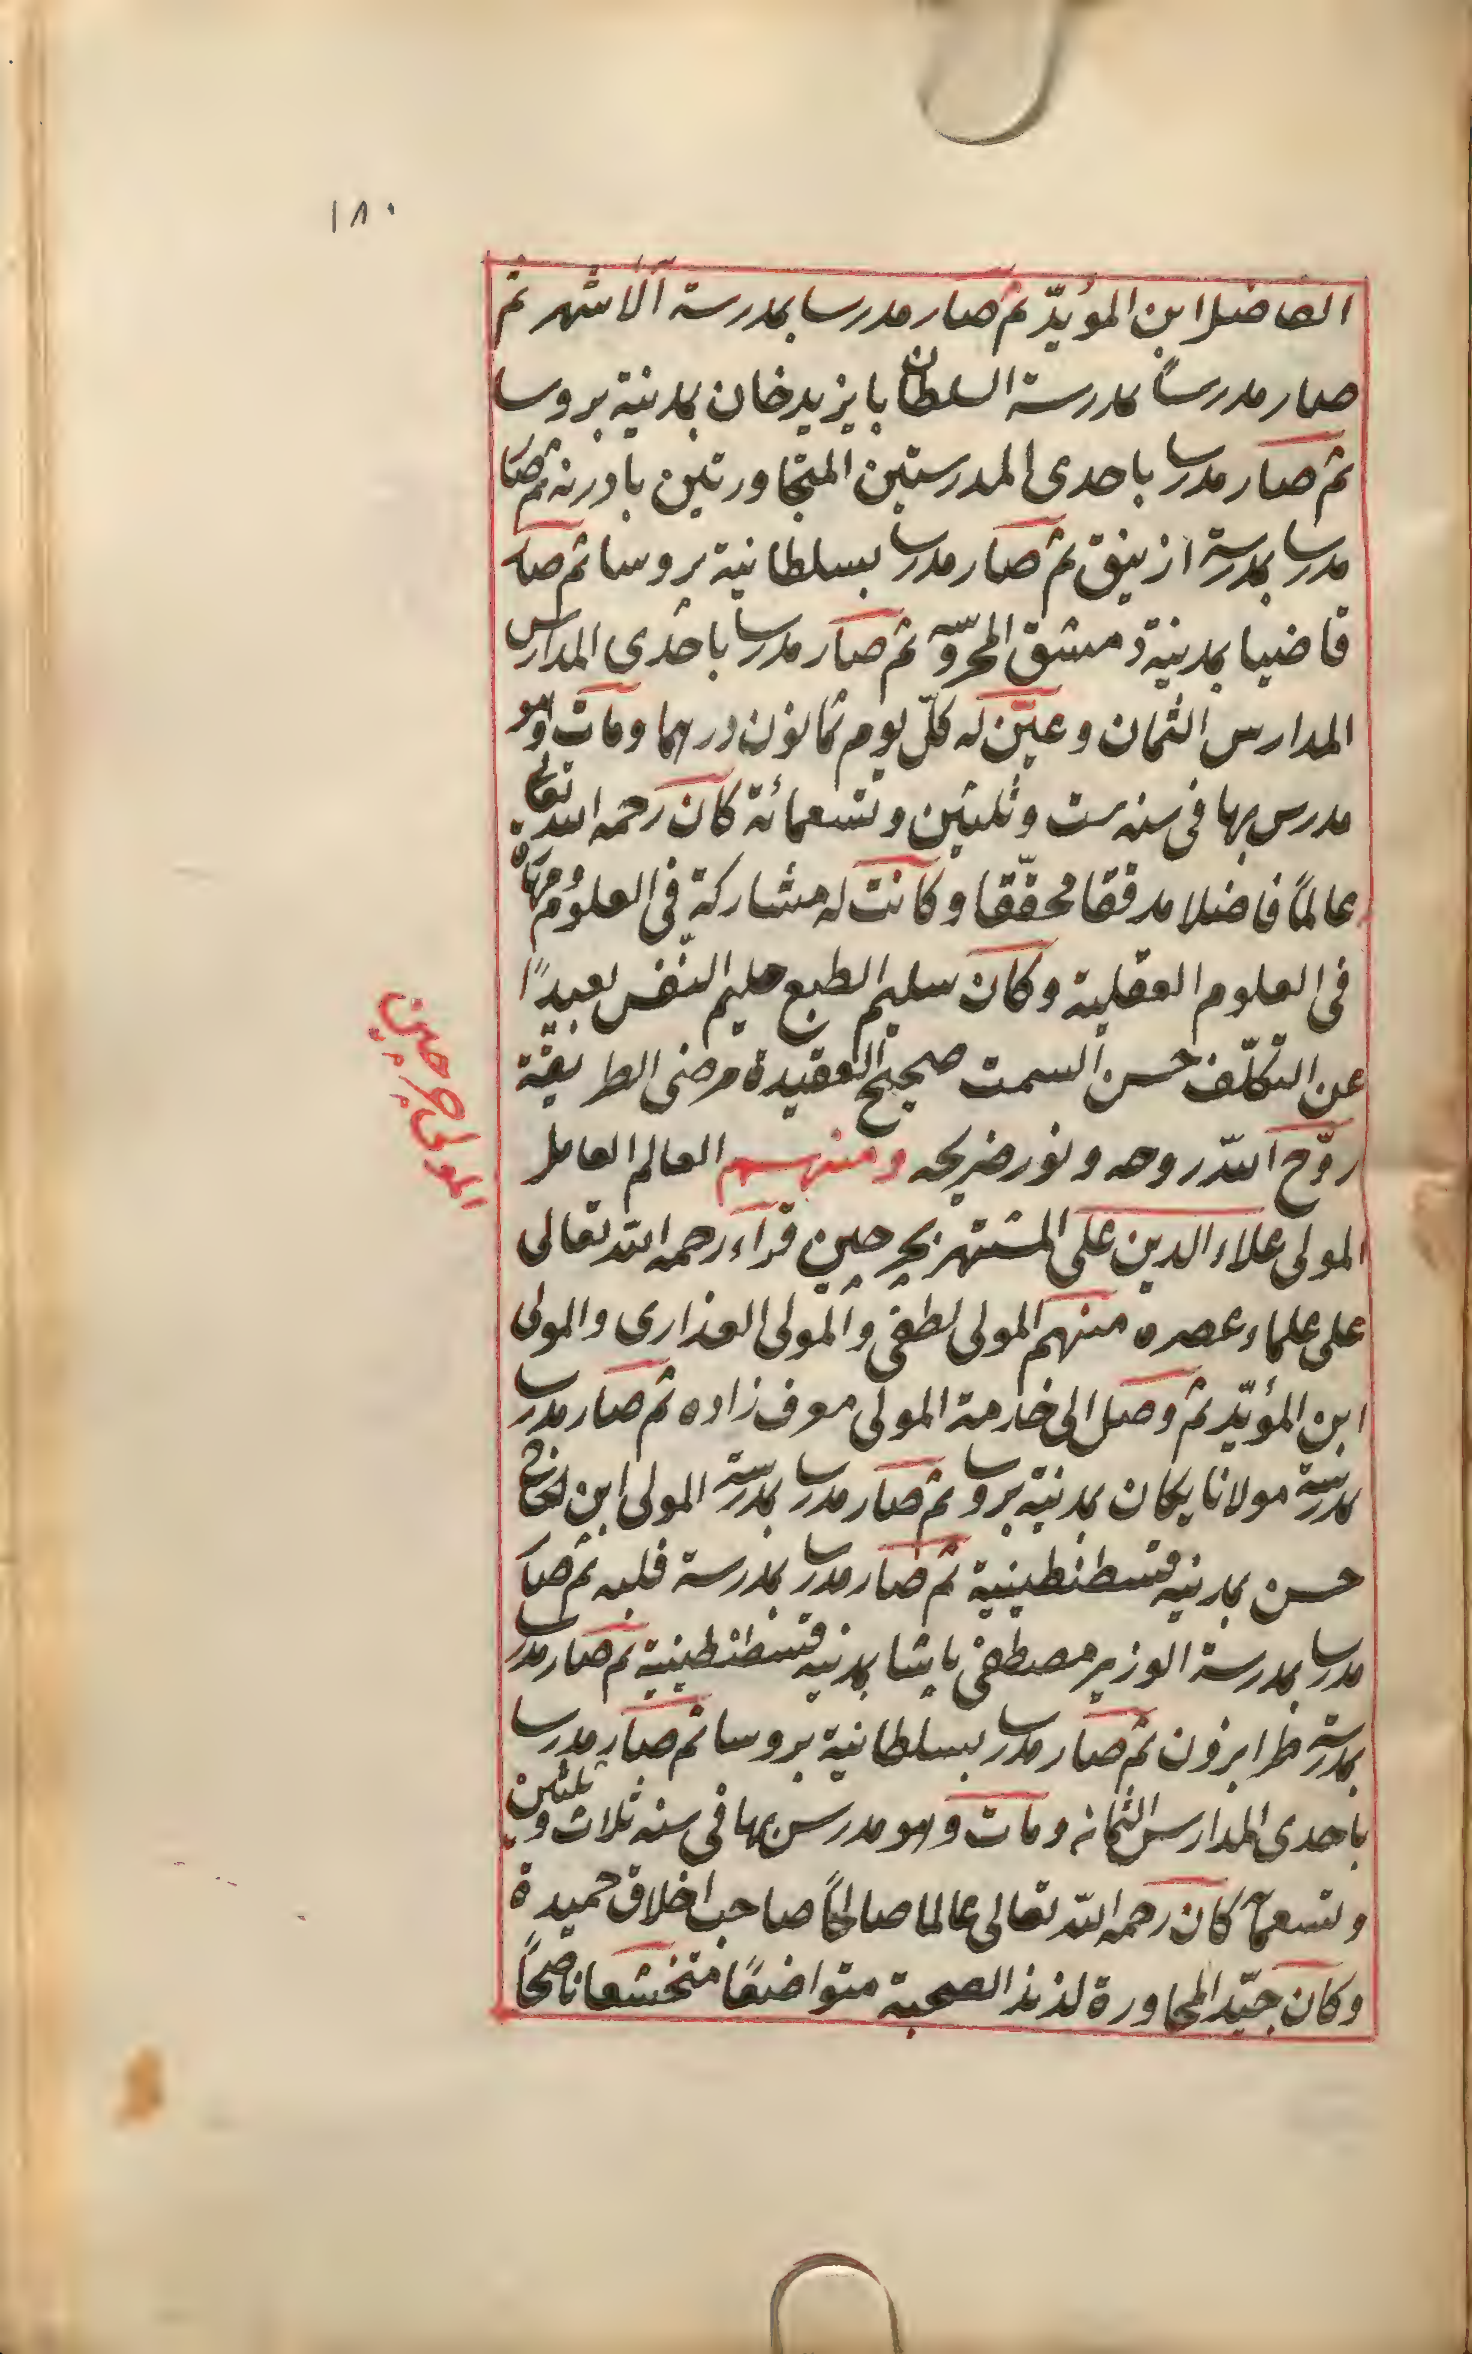 ١٨٠
الفاضل ابن المؤيّد ثم صار مدرسا بمدرسة آلاشهر ثم
صار مدرساً بمدرسة السلطان بايزيد خان بمدينة بروسا
ثم صار مدرسا باحدى المدرستين المتجاورتين بادرنه ثم صار
مدرسا بمدرسة ازنيق ثم صار مدرسا بسلطانية بروسا ثم صار
قاضيا بمدينة دمشق المحروسة ثم صار مدرسا باحدى المدارس
المدارس الثمان وعيّن له كلّ يوم ثمانون درهما ومات وهو
مدرس بها فى سنه ست وثلثين وتسعمائة كان رحمه الله تعالى
عالماً فاضلا مدققا محقّقا وكانت له مشاركة فى العلوم ومهارة
فى العلوم العقلية وكان سليم الطبع حليم النّفس بعيدًا
عن التكلّف حسن السمت صحيح العقيدة مرضى الطريقة
روّح الله روحه ونور ضريحه ومنهم العالم العامل
المولى علاء الدين على المشتهر بجرجين قرآء رحمه الله تعالى
على علماء عصره منهم المولى لطفى والمولى العذارى والمولى
ابن المؤيّد ثم وصل الى خدمة المولى معرف زاده ثم صار مدرسا
بمدرسة مولانا يكان بمدينة بروسا ثم صار مدرسا بمدرسة المولى ابن الحاج
حسن بمدينه قسطنطينية ثم صار مدرسا بمدرسة فلبه ثم صار
مدرسا بمدرسة الوزير مصطفى پاشا بمدينه قسطنطينية ثم صار مدرسا
بمدرسة طرابزون ثم صار مدرسا بسلطانية بروسا ثم صار مدرسا
باحدى المدارس الثمانه ومات وهو مدرس بها فى سنه ثلاث وثلثين
وتسعمآ كان رحمه الله تعالى عالما صالحاً صاحب اخلاق حميدة
وكان جيّد المحاورة لذيذ الصحبة متواضعًا متخشعا ناصحاً
المولى جرجين